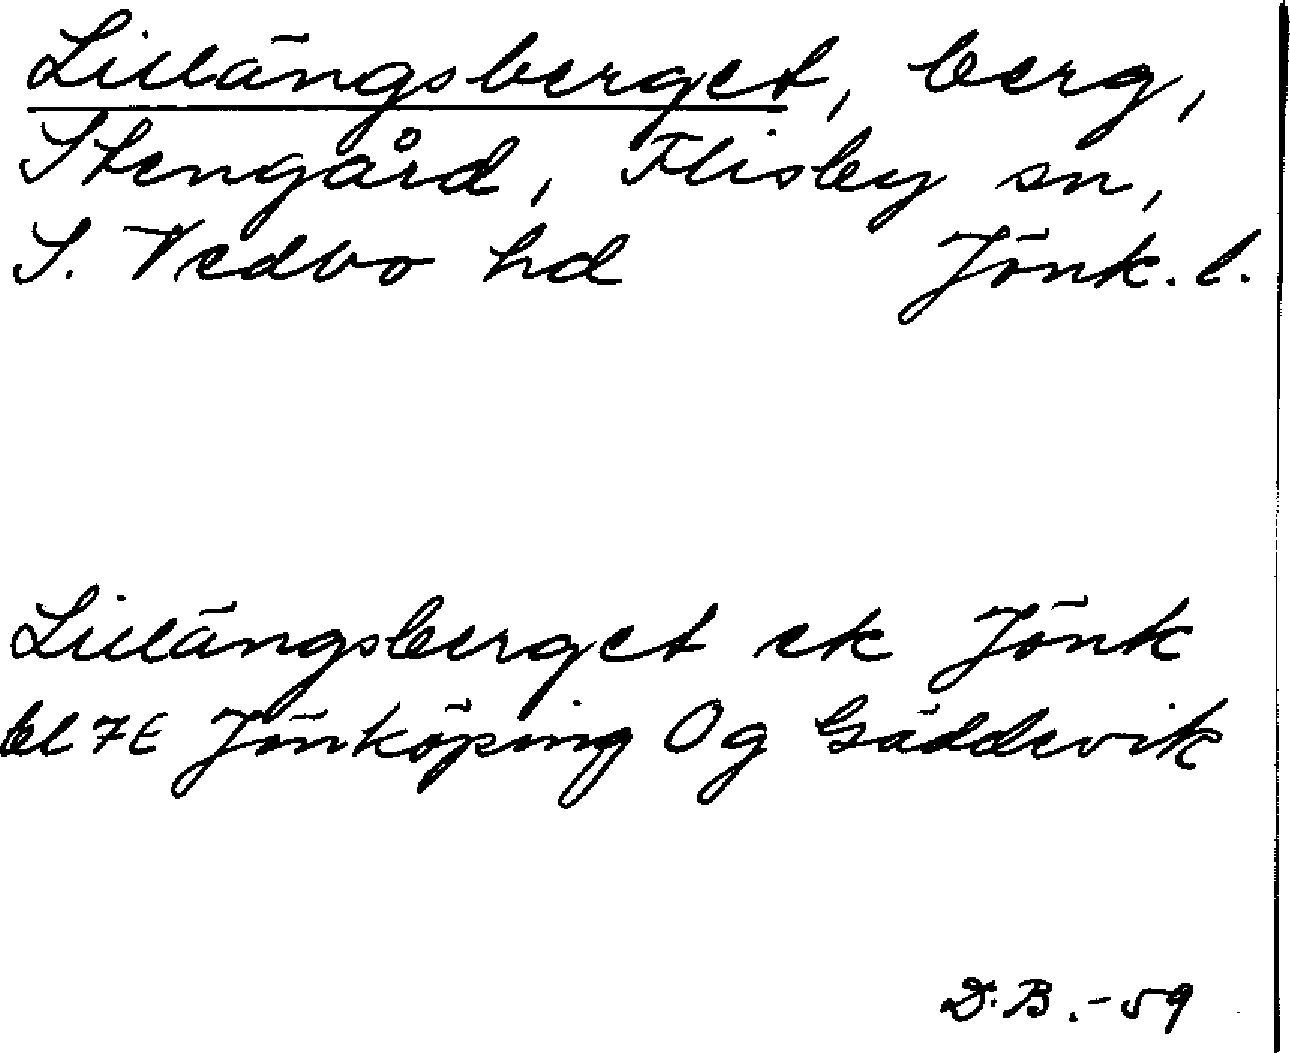 Lillängsberget, berg,
Stengård, Flisby sn,
S. Vedbo hd Jönk. l.
Lillängsberget ek Jönk
bl 7E Jönköping Og Gäddevik
D.B.-59